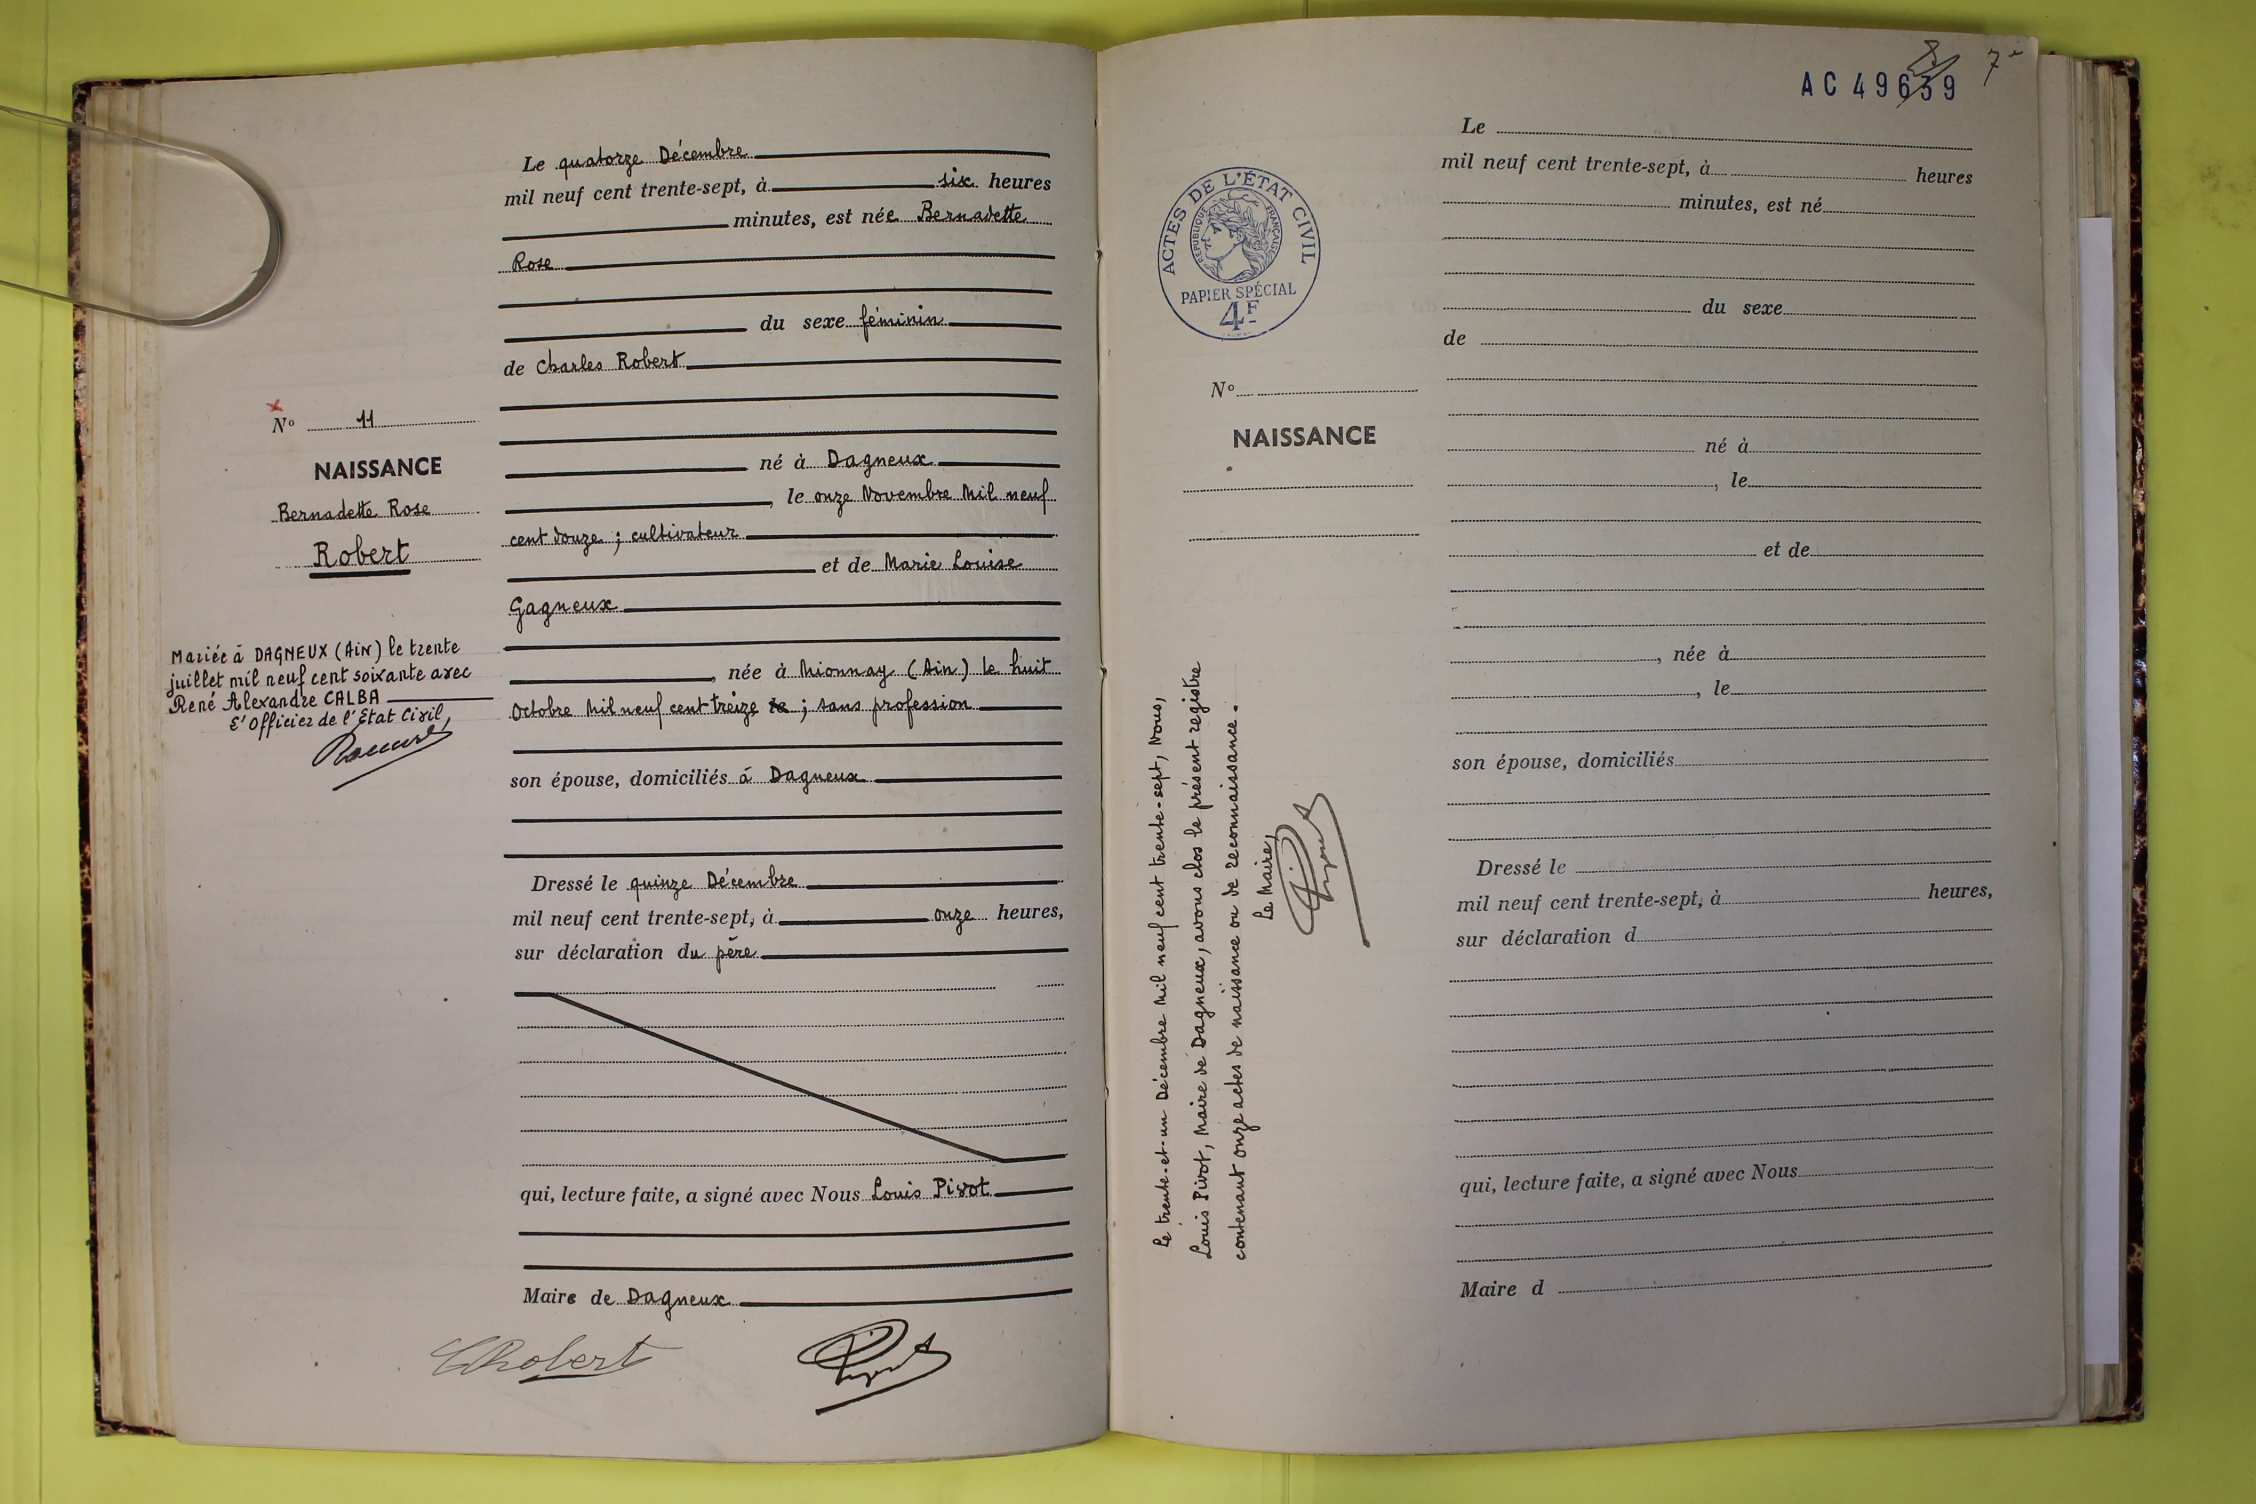 Le quatorze Décembre
mil neuf cent trente-sept, à six heures
minutes, est née Bernadette
Rose
du sexe féminin
de Charles Robert
né à Dagneux
, le onze Novembre Mil neuf
cent douze ; cultivateur
et de Marie Louise
Gagneux
, née à Mionnay (Ain) le huit
Octobre Mil neuf cent treize ; sans profession
son épouse, domiciliés à Dagneux
Dressé le quinze Décembre
mil neuf cent trente-sept, à onze heures,
sur déclaration du père
qui, lecture faite, a signé avec Nous Louis Pivot
Maire de Dagneux
CRobert
Pivot
N° 11
NAISSANCE
Bernadette Rose
Robert
Mariée à DAGNEUX (Ain) le trente
juillet mil neuf cent soixante avec
René Alexandre CALBA
L'Officier de l'État Civil,
AC 49639
7
ACTES DE L'ÉTAT CIVIL
RÉPUBLIQUE FRANÇAISE
PAPIER SPÉCIAL
4F
N°
NAISSANCE
Le trente-et-un Décembre Mil neuf cent trente-sept, Nous,
Louis Pivot, Maire de Dagneux, avons clos le présent registre
contenant onze actes de naissance ou de reconnaissance.
Le Maire,
Pivot
Le
mil neuf cent trente-sept, à heures
minutes, est né
du sexe
de
né à
, le
et de
, née à
, le
son épouse, domiciliés
Dressé le
mil neuf cent trente-sept, à heures,
sur déclaration d
qui, lecture faite, a signé avec Nous
Maire d